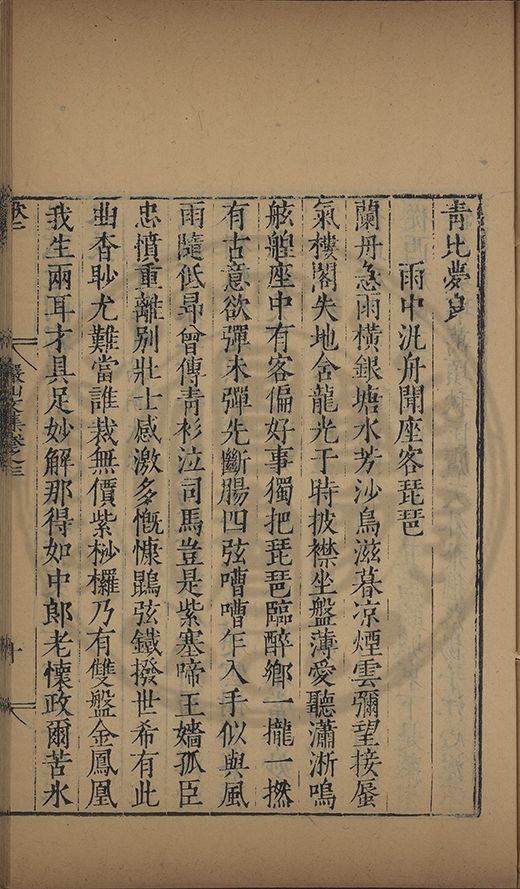 青比夢良
雨中汎舟聞座客琵琶
蘭舟急雨橫銀塘水芳沙鳥滋暮凉煙雲彌望接蜃
氣樓閣失地含龍光于時披襟坐盤薄愛聽瀟淅鳴
舷艎座中有客偏好事獨把琵琶臨醉鄉一攏一撚
有古意欲彈未彈先斷腸四弦嘈嘈乍入手似與風
雨隨低昂曾傳青衫泣司馬豈是紫塞啼王嬙孤臣
忠憤重離別壯士感激多慨慷鵾弦鐵撥世希有此
曲杳眇尤難當誰裁無價紫桫欏乃有雙盤金鳳凰
我生兩耳才具足妙解那得如中郎老懷政爾苦氷
儼山文集卷之三
十